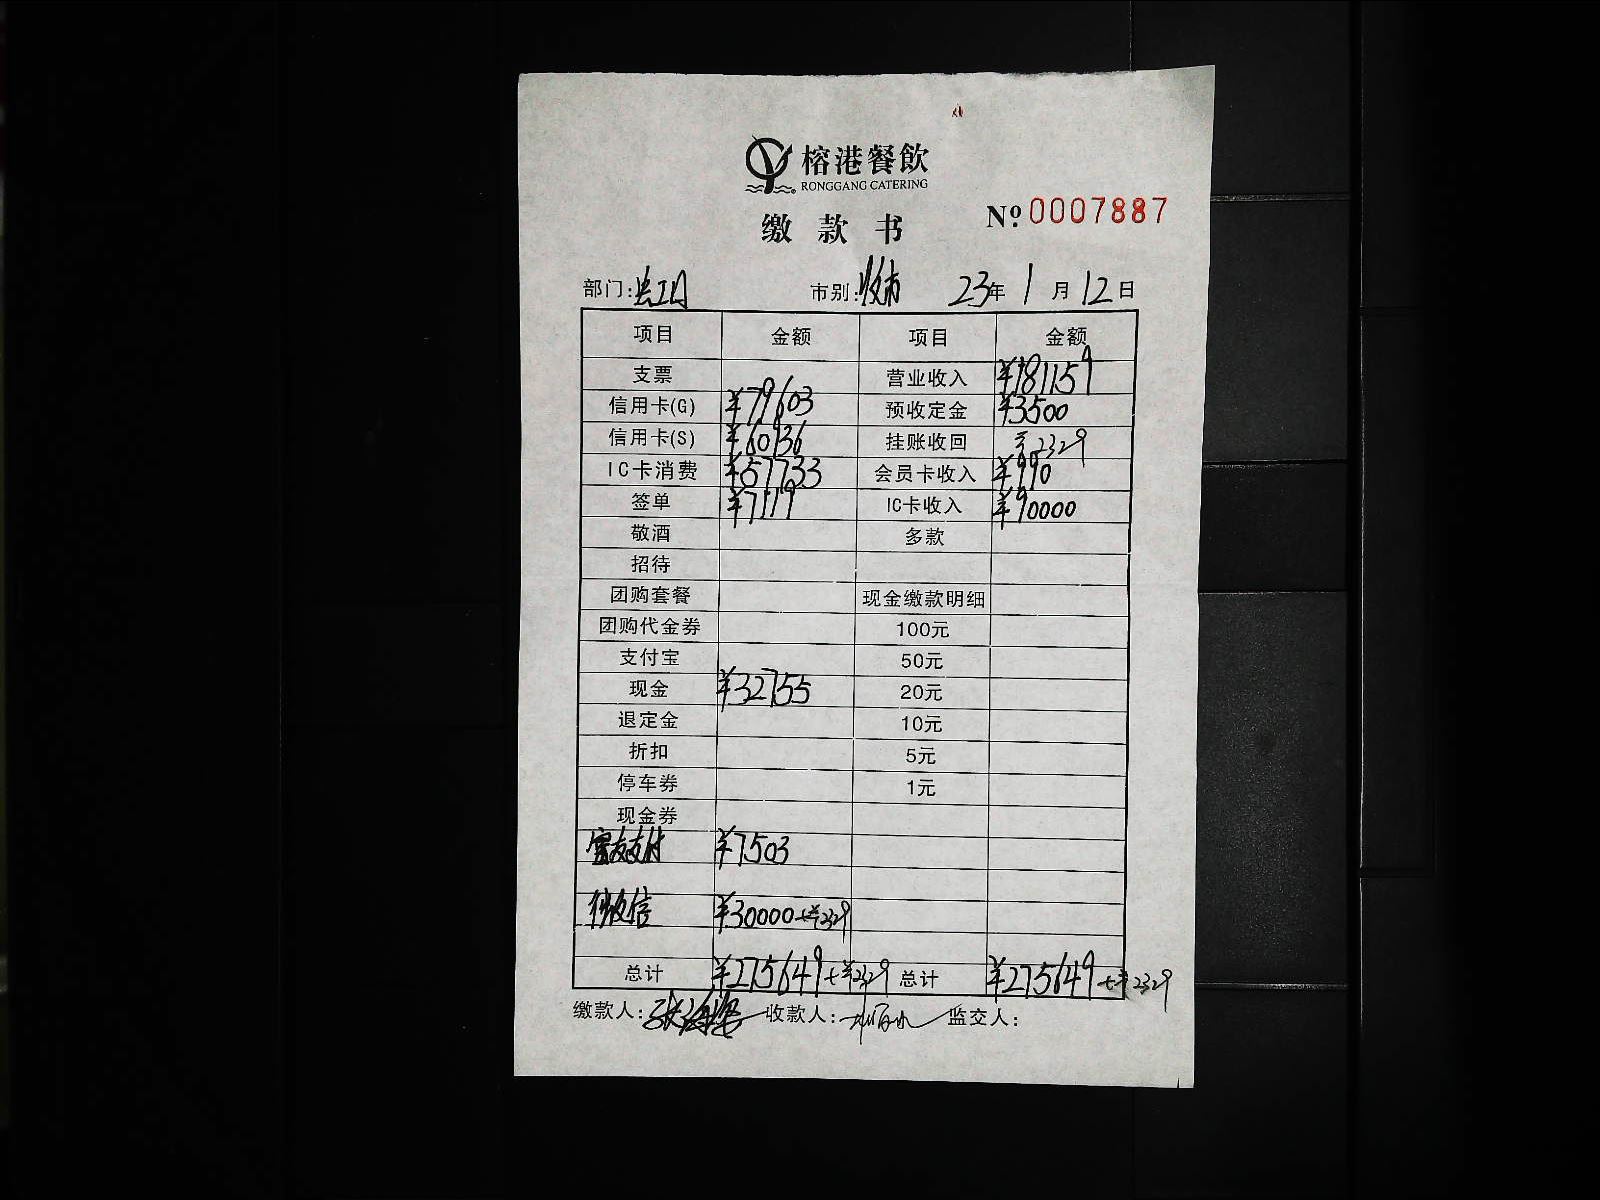 榕港餐飲
RONGGANG CATERING
No. 0007887
缴款书
部门: 市别: 收市 23年 1月 12日
项目 金额 项目 金额
支票 营业收入 ¥181159
信用卡(G) ¥79603 预收定金 ¥3500
信用卡(S) ¥60936 挂账收回 ¥2329
IC卡消费 ¥57733 会员卡收入 ¥990
签单 ¥7119 IC卡收入 ¥90000
敬酒 多款
招待
团购套餐 现金缴款明细
团购代金券 100元
支付宝 50元
现金 ¥32755 20元
退定金 10元
折扣 5元
停车券 1元
现金券
支付 ¥7503
微信 ¥30000+¥2329
总计 ¥275649+¥2329 总计 ¥275649+¥2329
缴款人: 收款人: 监交人: